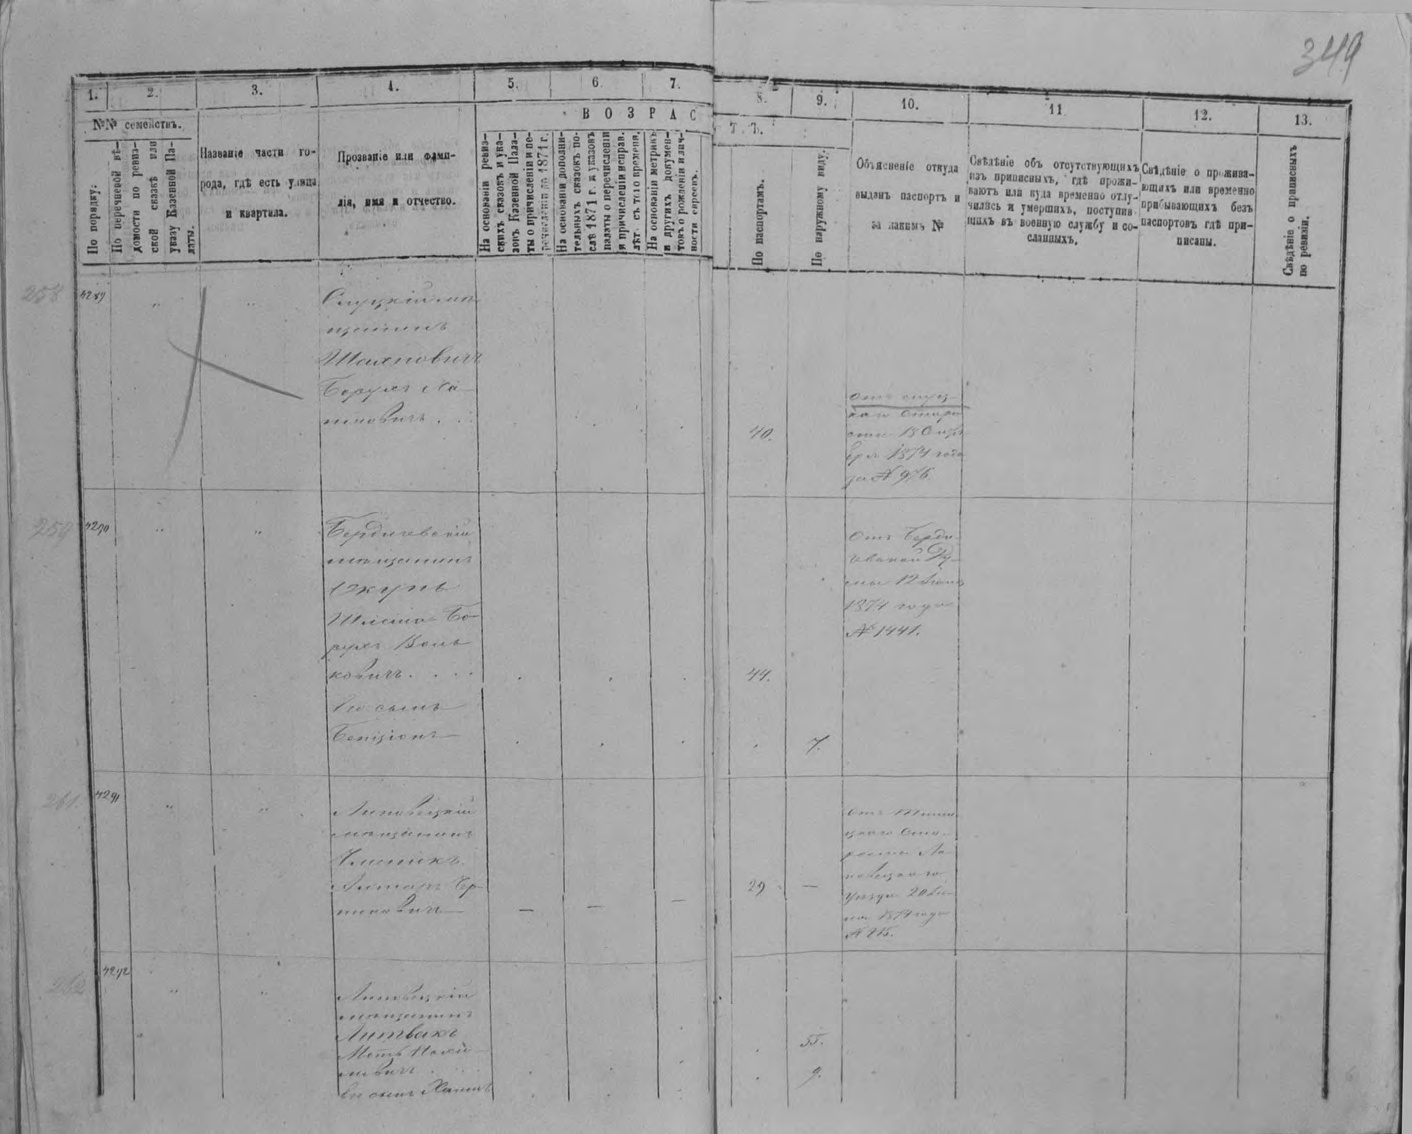 349
1.
2.
3.
4.
5.
6.
7.
8.
9.
10.
11
12.
13.
№№ семействъ.
По порядку.
По перечневой вѣ-
домости по ревиз-
ской сказкѣ или
указу Казенной Па-
латы.
Названіе части го-
рода, гдѣ есть улица
и квартила.
Прозваніе или фами-
лія, имя и отчество.
В О З Р А С
Т Ъ.
На основаніи ревиз-
скихъ сказокъ и ука-
зовъ Казенной Пала-
ты о причисленіи и пе-
речисленіи до 1871 г.
На основаніи дополни-
тельныхъ сказокъ по-
слѣ 1871 г. и указовъ
палаты о перечисленіи
и причисленіи исправ.
лѣт. съ того времени.
На основаніи метрикъ
и другихъ докумен-
товъ о рожденіи и лич-
ности евреевъ.
По паспортамъ.
По наружному виду.
Объясненіе откуда
выданъ паспортъ и
за какимъ №
Свѣдѣніе объ отсутствующихъ
изъ приписныхъ, гдѣ прожи-
ваютъ или куда временно отлу-
чились и умершихъ, поступив-
шихъ въ военную службу и со-
сланныхъ.
Свѣдѣніе о прожива-
ющихъ или временно
прибывающихъ безъ
паспортовъ гдѣ при-
писаны.
Свѣдѣніе о приписныхъ
по ревизіи.
258
4289
Слуцкій мѣ
щанинъ
Шахновичъ
Борухъ
40.
Отъ слуц-
1874 года
за № 976
259
4290
Бердичевскій
мѣщанинъ
Окунь
Шлема-Бо
рухъ Воль
ковичъ
Его сынъ
Бенціонъ
44.
7.
Отъ Берди-
чевской Ду
мы 12
1874 года
№ 1441.
261
4291
Липовецкій
мѣщанинъ
29
—
Ли-
повецкаго
уѣзда 20
1874 года
№ 215.
262
4292
Липовецкій
мѣщанинъ
Литвакъ
55.
9.